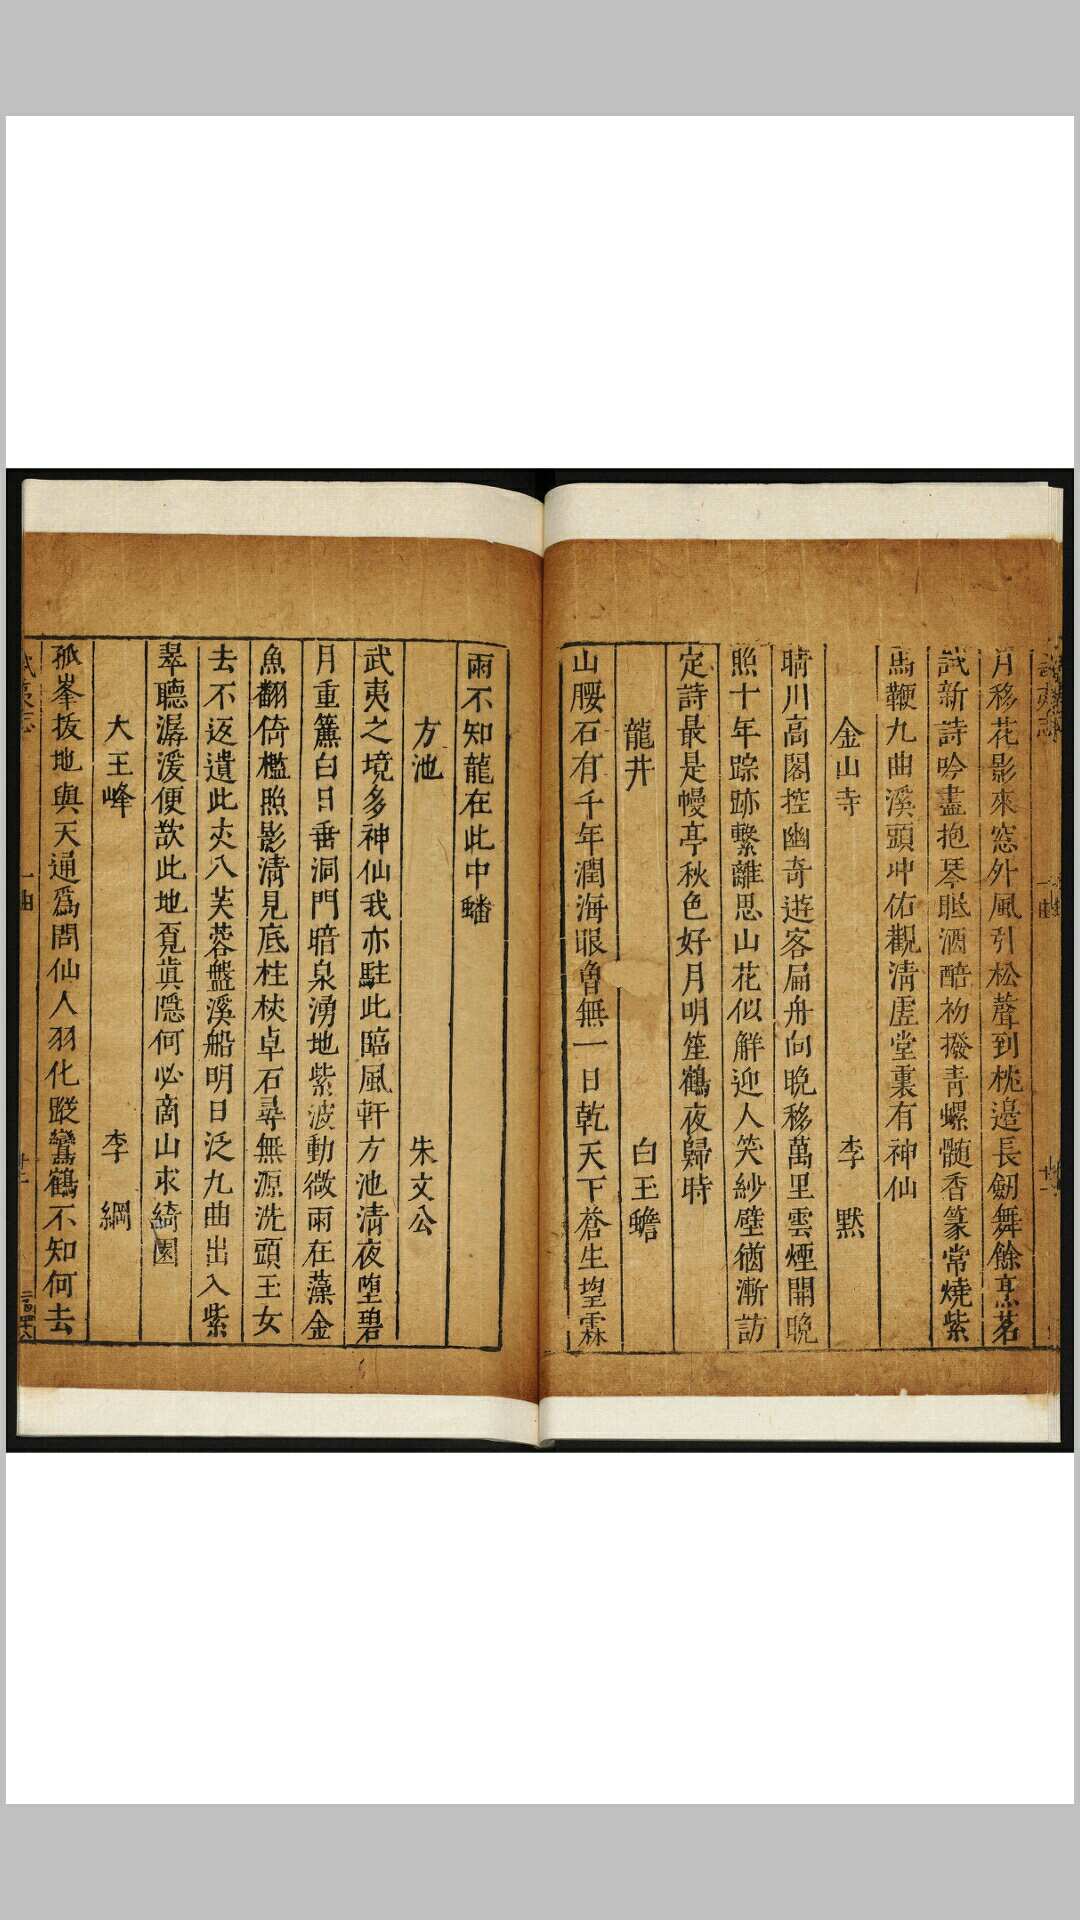 月移花影來窓外風引松聲到枕邊長劒舞餘烹茗
試新詩吟盡抱琴眠酒醅初撥青螺髓香篆常燒紫
馬鞭九曲溪頭冲佑觀清虛堂裏有神仙
金山寺 李默
晴川高閣控幽奇遊客扁舟向晚移萬里雲煙開晚
照十年踪跡繫離思山花似解迎人笑紗壁猶漸訪
定詩最是幔亭秋色好月明笙鶴夜歸時
龍井 白玉蟾
山腰石有千年潤海眼曾無一日乾天下蒼生望霖
雨不知龍在此中蟠
方池 朱文公
武夷之境多神仙我亦駐此臨風軒方池清夜墮碧
月重簾白日垂洞門暗泉湧地紫波動微雨在藻金
魚翻倚檻照影清見底柱杖卓石尋無源洗頭玉女
去不返遺此夾八芙蓉盤溪船明日泛九曲出入紫
翠聽潺湲便欲此地覓真隱何必商山求綺園
大王峰 李綱
孤峯拔地與天通爲問仙人羽化蹤鸞鶴不知何去
武夷志 一曲